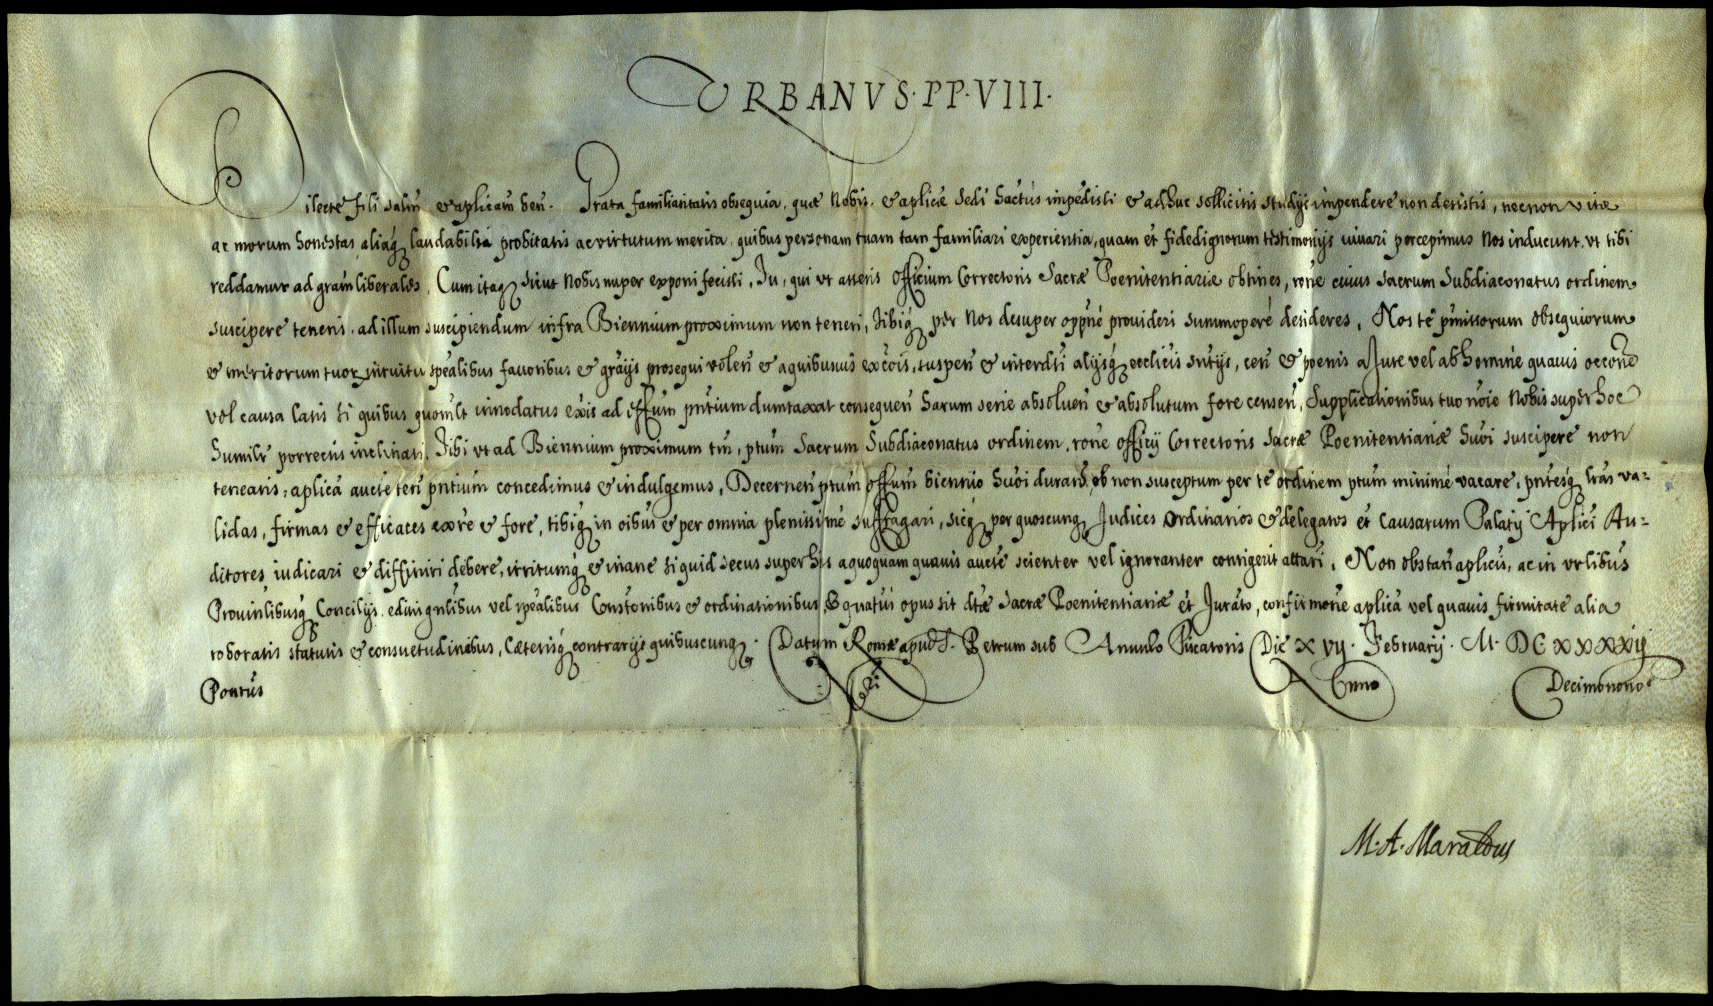 URBANVS·PP·VIII·
Dilecte fili salm̃ et aplicam̃ ben. Grata familiaritatis obsequia, quæ Nobis et aplicæ Sedi hactũs impẽdisti et adhuc sollicitis studijs impendere non desistis, necnon vitæ
ac morum honestas, aliaq; laudabilia probitatis ac virtutum merita quibus personam tuam tam familiari experientia, quam et fidedignorum testimonijs iuuari percepimus Nos inducunt, vt tibi
reddamur ad gram̃ liberales. Cum itaq; sicut Nobis nuper exponi fecisti, Tu, qui vt asseris officium Correctoris Sacræ Poenitentiariæ obtines, rõne cuius sacrum Subdiaconatus ordinem
suscipere teneris, ad illum suscipiendum infra Biennium proximum non teneri, tibiq; per Nos desuper oppnẽ prouideri summoperè desideres. Nos te pm̃issorum obsequiorum
et meritorum tuor. intuitu spẽalibus fauoribus et grãijs prosequi volen̄ et a quibusuis excõis, suspen̄ et interdti alijsq; ecclicis sn̄tijs, cen̄ et poenis a Jure vel ab homine quauis occõne
vel causa latis si quibus quom̃lt innodatus exis̃ ad effum̃ pn̄tium dumtaxat consequen̄ harum serie absoluen̄ et absolutum fore censen̄, Supplicationibus tuo nõie Nobis super hoc
humilr̃ porrectis inclinati, Tibi vt ad Biennium proximum tm̃, ptum̃ Sacrum Subdiaconatus ordinem, rõne officij Correctoris Sacræ Poenitentiariæ hm̃oi suscipere non
tenearis, aplicã aucte ten̄ pn̄tium concedimus et indulgemus, Decernen̄ ptum̃ offum̃ biennio hm̃oi duran̄, ob non susceptum per te ordinem ptum̃ minimè vacare, pn̄tesq; lrãs va-
lidas, firmas et efficaces exr̃e et fore, tibiq; in oĩbus et per omnia plenissimè suffragari, sicq; per quoscunq; Judices ordinarios et delegatos et Causarum Palatij Aplici Au-
ditores iudicari et diffiniri debere, irritumq; et inane si quid secus super his a quoquam quauis aucte scienter vel ignoranter contigerit attari. Non obstan̄ aplicis, ac in vnlibus
Prouinlibusq; Concilijs editis gnl̃ibus vel spẽalibus Constõnibus et ordinationibus, et quatus̃ opus sit dtæ Sacræ Poenitentiariæ et Jurato, confirmõne aplicã vel quauis firmitate alia
roboratis statutis et consuetudinibus, Cæterisq; contrarijs quibuscunq;. Datum Romæ apud S. Petrum sub Annulo Piscatoris Die XVII Februarij. M. DCXXXXij
Pontũs Anno Decimonono
M. A. Maraldus